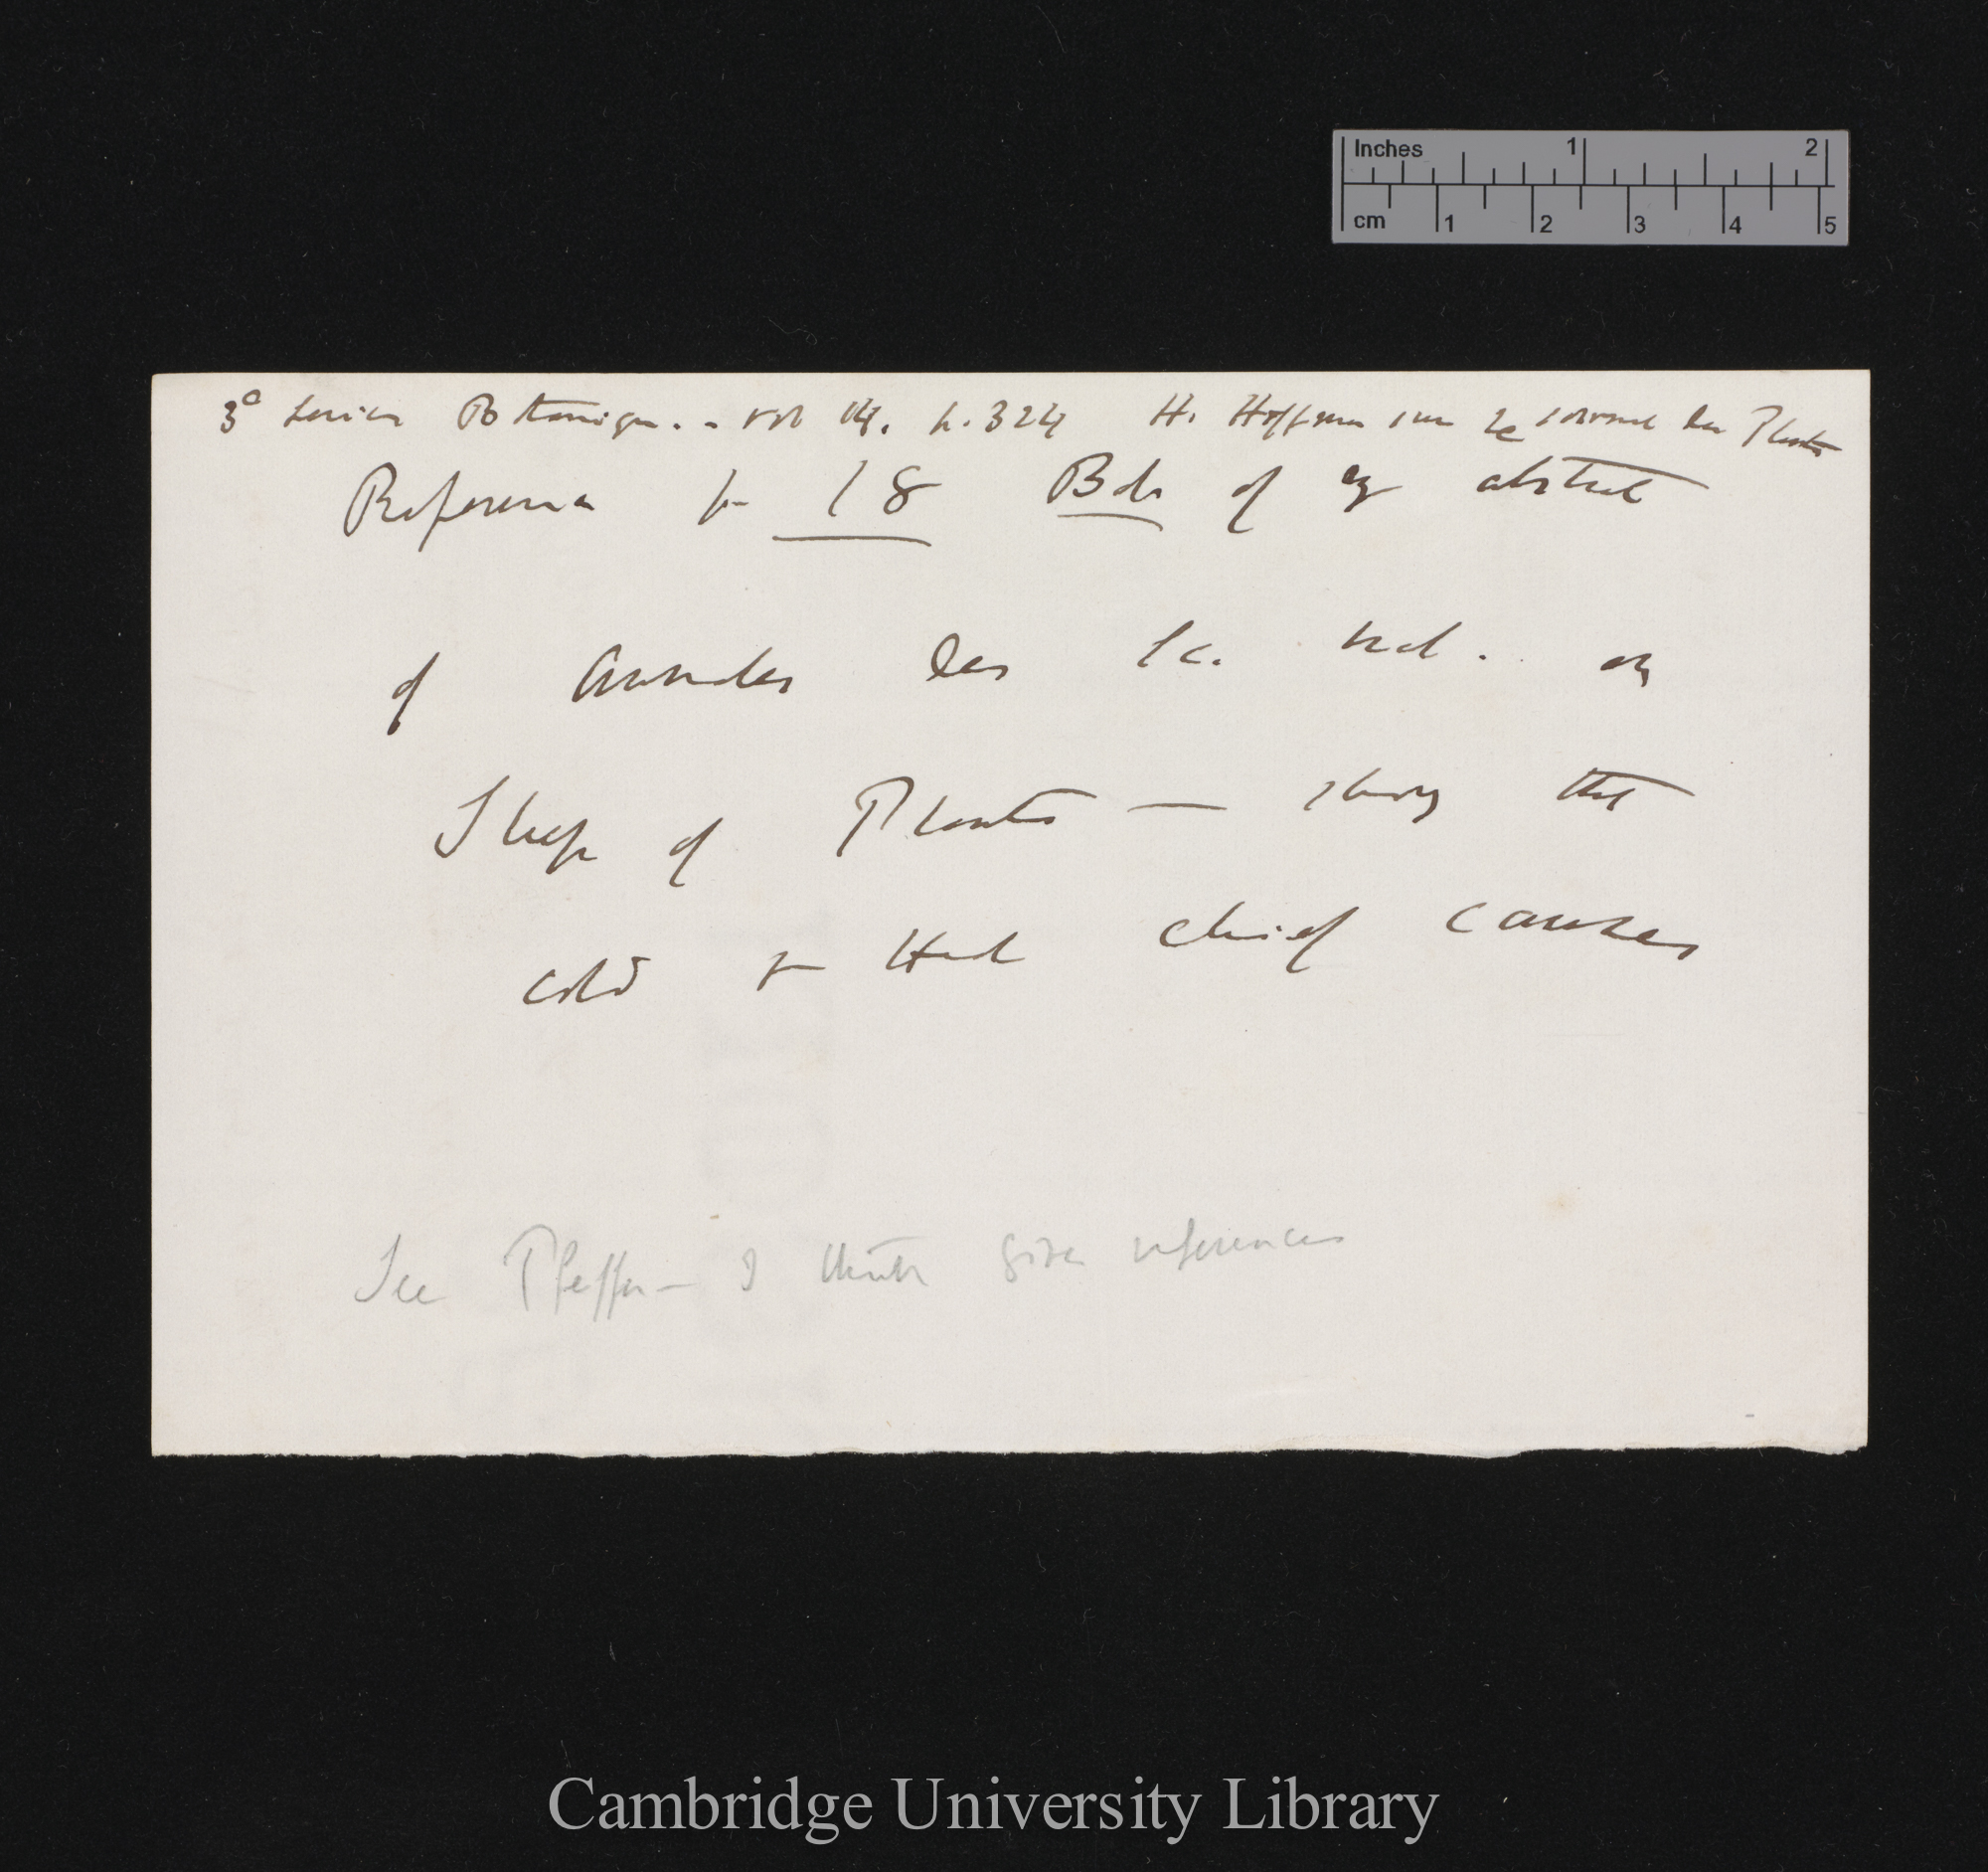 Inches 1 2
cm 1 2 3 4 5
3e series Botanique.. vol 14. p. 324 H. Hoffman sur le sommeil des Plantes
Reference p 18 Bdr of my abstract
of Annales des Sc. Nat. on
Sleep of Plants — shows that
cold & Heat chief causes
See Pfeffer — I think gives references
Cambridge University Library